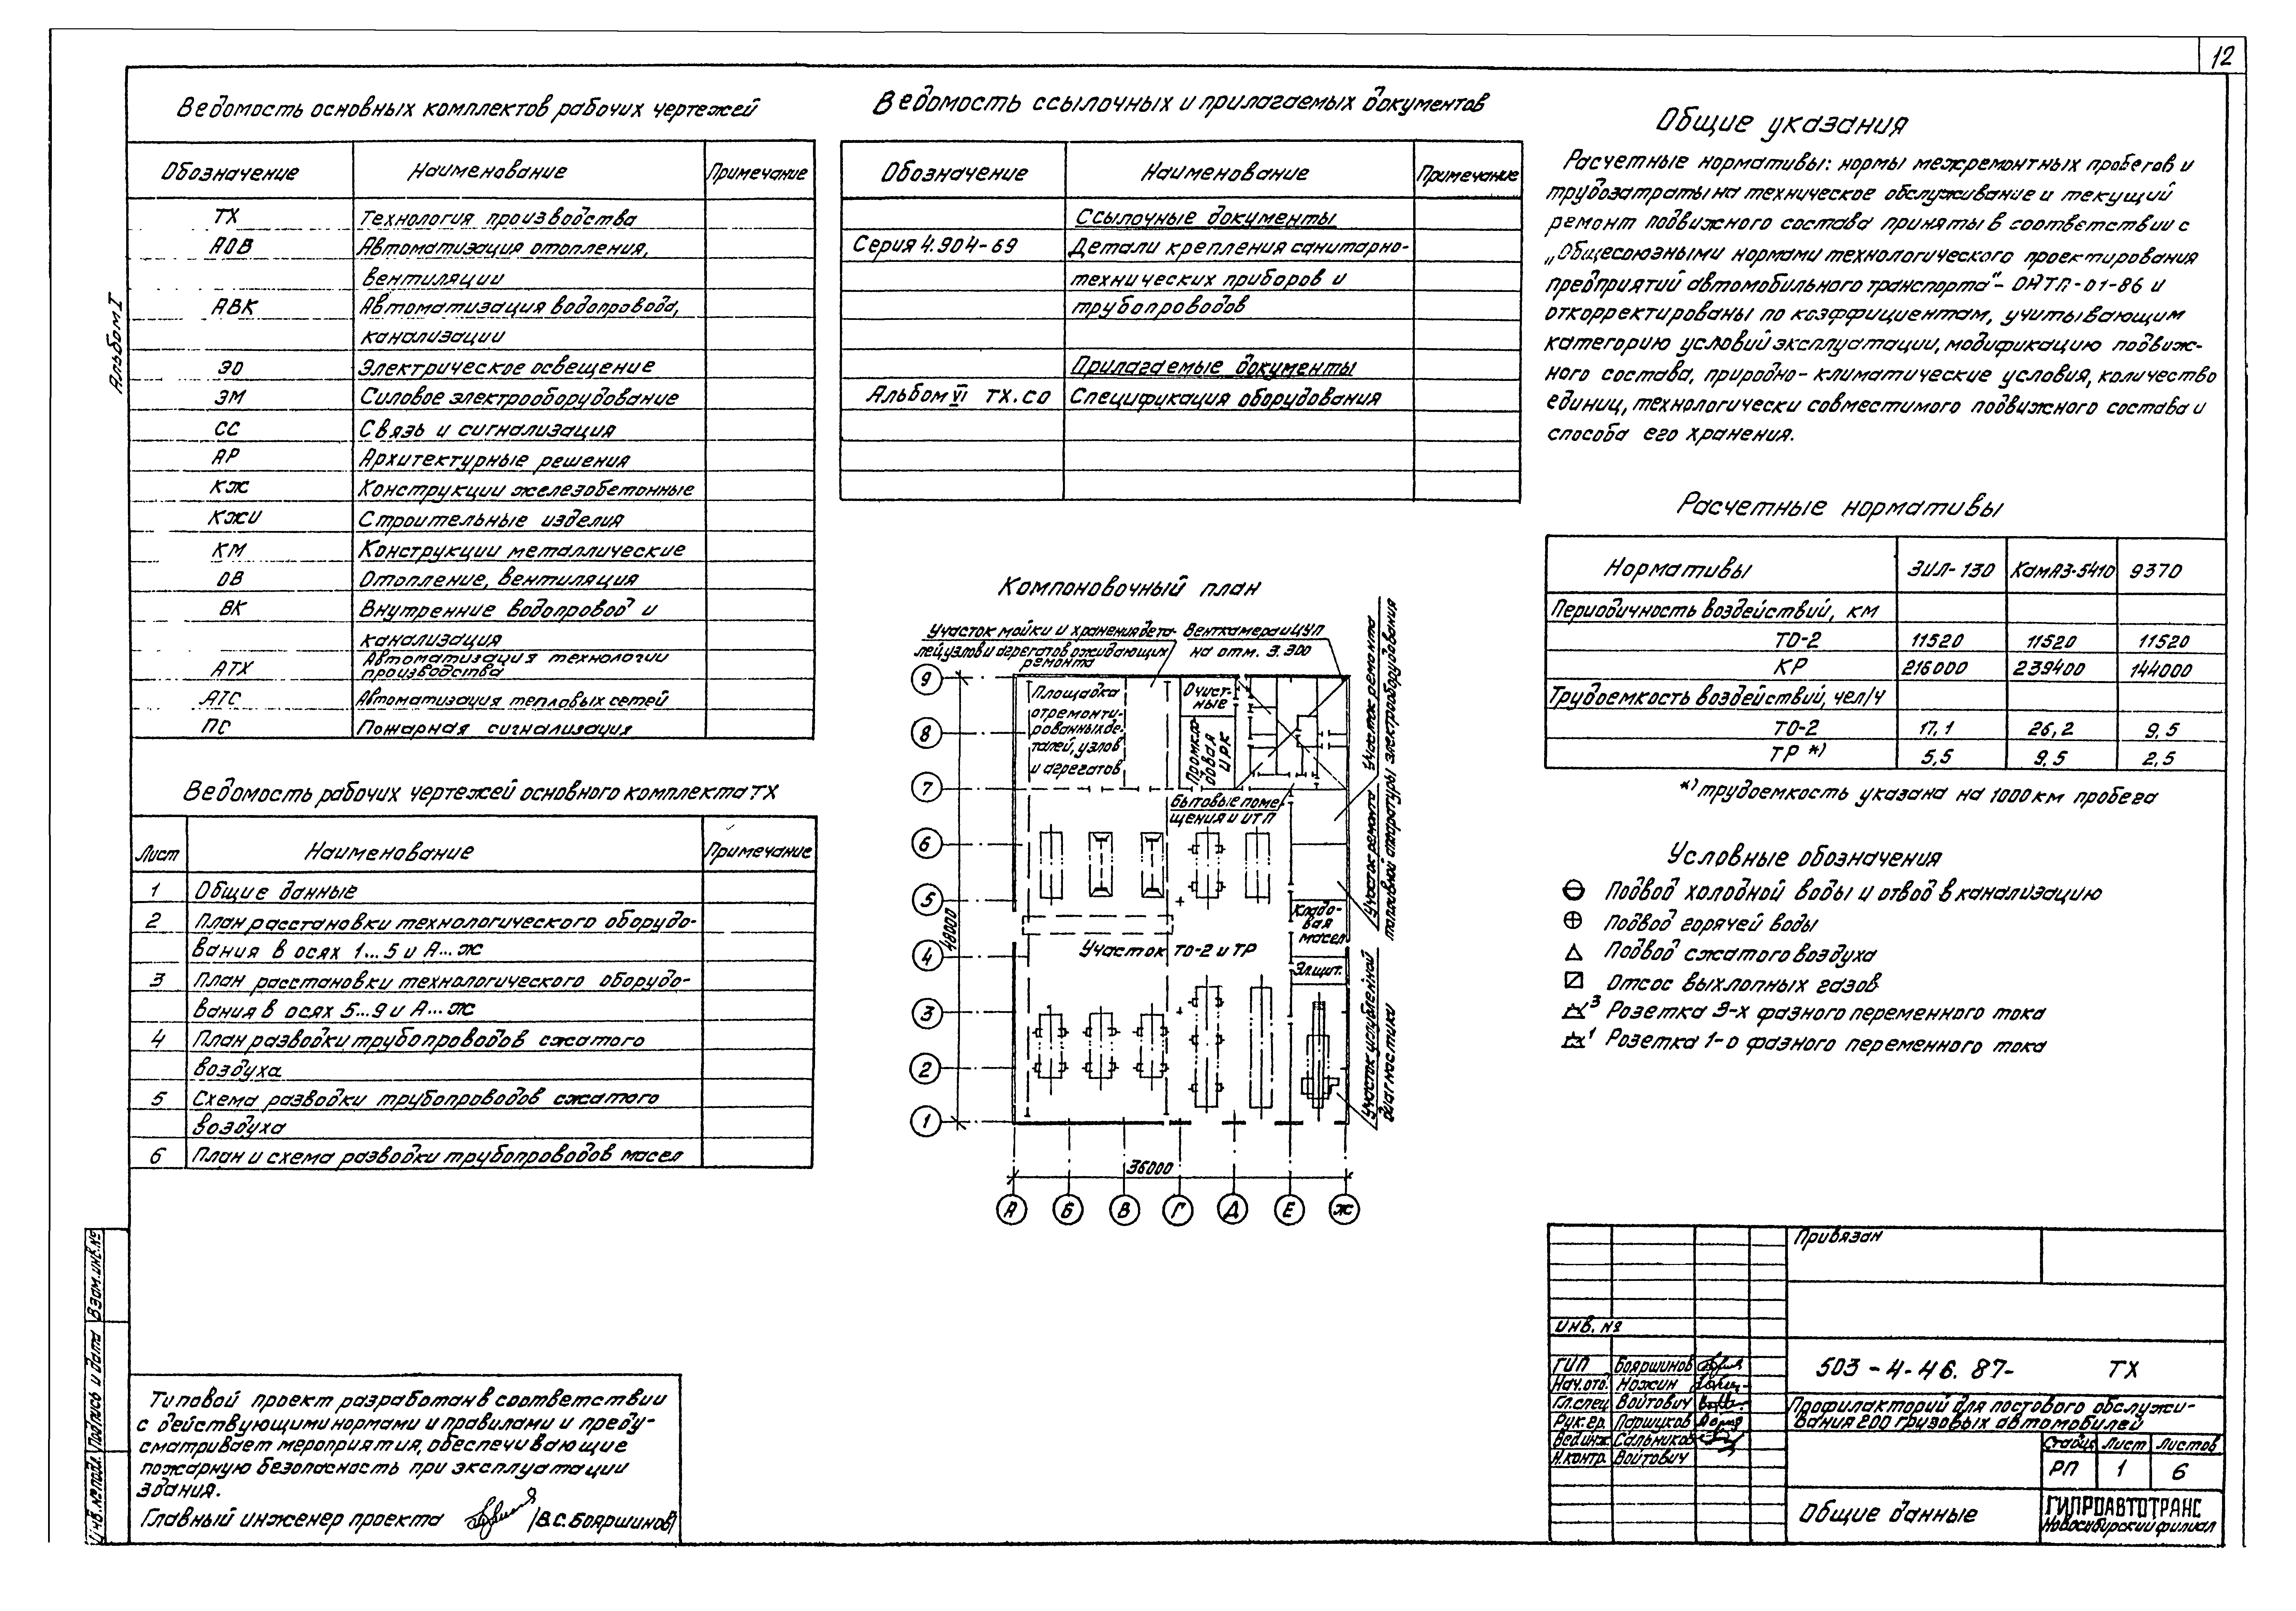 12
Альбом I
Ведомость основных комплектов рабочих чертежей
Обозначение Наименование Примечание
ТХ Технология производства
АОВ Автоматизация отопления,
вентиляции
АВК Автоматизация водопровода,
канализации
ЭО Электрическое освещение
ЭМ Силовое электрооборудование
СС Связь и сигнализация
АР Архитектурные решения
КЖ Конструкции железобетонные
КЖИ Строительные изделия
КМ Конструкции металлические
ОВ Отопление, вентиляция
ВК Внутренние водопровод и
канализация
АТХ Автоматизация технологии
производства
АТС Автоматизация тепловых сетей
ПС Пожарная сигнализация
Ведомость рабочих чертежей основного комплекта ТХ
Лист Наименование Примечание
1 Общие данные
2 План расстановки технологического оборудо-
вания в осях 1...5 и А...Ж
3 План расстановки технологического оборудо-
вания в осях 5...9 и А...Ж
4 План разводки трубопроводов сжатого
воздуха
5 Схема разводки трубопроводов сжатого
воздуха
6 План и схема разводки трубопроводов масел
Типовой проект разработан в соответствии
с действующими нормами и правилами и преду-
сматривает мероприятия, обеспечивающие
пожарную безопасность при эксплуатации
здания.
Главный инженер проекта /В.С.Бояршинов/
Инв.№подл. Подпись и дата Взам.инв.№
Ведомость ссылочных и прилагаемых документов
Обозначение Наименование Примечание
Ссылочные документы
Серия 4.904-69 Детали крепления санитарно-
технических приборов и
трубопроводов
Прилагаемые документы
Альбом VI ТХ.СО Спецификация оборудования
Компоновочный план
Участок мойки и хранения дета-
лей, узлов и агрегатов ожидающих
ремонта
Венткамера и ЦУП
на отм. 3.300
Площадка
отремонти-
рованных де-
талей, узлов
и агрегатов
Очист-
ные
Промкла-
довая
ИРК
Бытовые поме-
щения и ИТП
Кладо-
вая
масел
Участок ТО-2 и ТР
Эл.щит.
Участок ремонта
электрооборудования
Участок ремонта
топливной аппаратуры
Участок углубленной
диагностики
9
8
7
6
5
4
3
2
1
48000
36000
А Б В Г Д Е Ж
Общие указания
Расчетные нормативы: нормы межремонтных пробегов и
трудозатраты на техническое обслуживание и текущий
ремонт подвижного состава приняты в соответствии с
„Общесоюзными нормами технологического проектирования
предприятий автомобильного транспорта“- ОНТП-01-86 и
откорректированы по коэффициентам, учитывающим
категорию условий эксплуатации, модификацию подвиж-
ного состава, природно-климатические условия, количество
единиц, технологически совместимого подвижного состава и
способа его хранения.
Расчетные нормативы
Нормативы ЗИЛ-130 КамАЗ-5410 9370
Периодичность воздействий, км
ТО-2 11520 11520 11520
КР 216000 239400 144000
Трудоемкость воздействий, чел/ч
ТО-2 17,1 26,2 9,5
ТР *) 5,5 9,5 2,5
*) трудоемкость указана на 1000 км пробега
Условные обозначения
Подвод холодной воды и отвод в канализацию
Подвод горячей воды
Подвод сжатого воздуха
Отсос выхлопных газов
3 Розетка 3-х фазного переменного тока
1 Розетка 1-о фазного переменного тока
Привязан
Инв. №
ГИП Бояршинов
Нач.отд. Ножин
Гл.спец. Войтович
Рук.гр. Паршуков
Вед.инж. Сальников
Н.контр. Войтович
503-4-46.87- ТХ
Профилакторий для постового обслужи-
вания 200 грузовых автомобилей
Стадия Лист Листов
РП 1 6
Общие данные
ГИПРОАВТОТРАНС
Новосибирский филиал